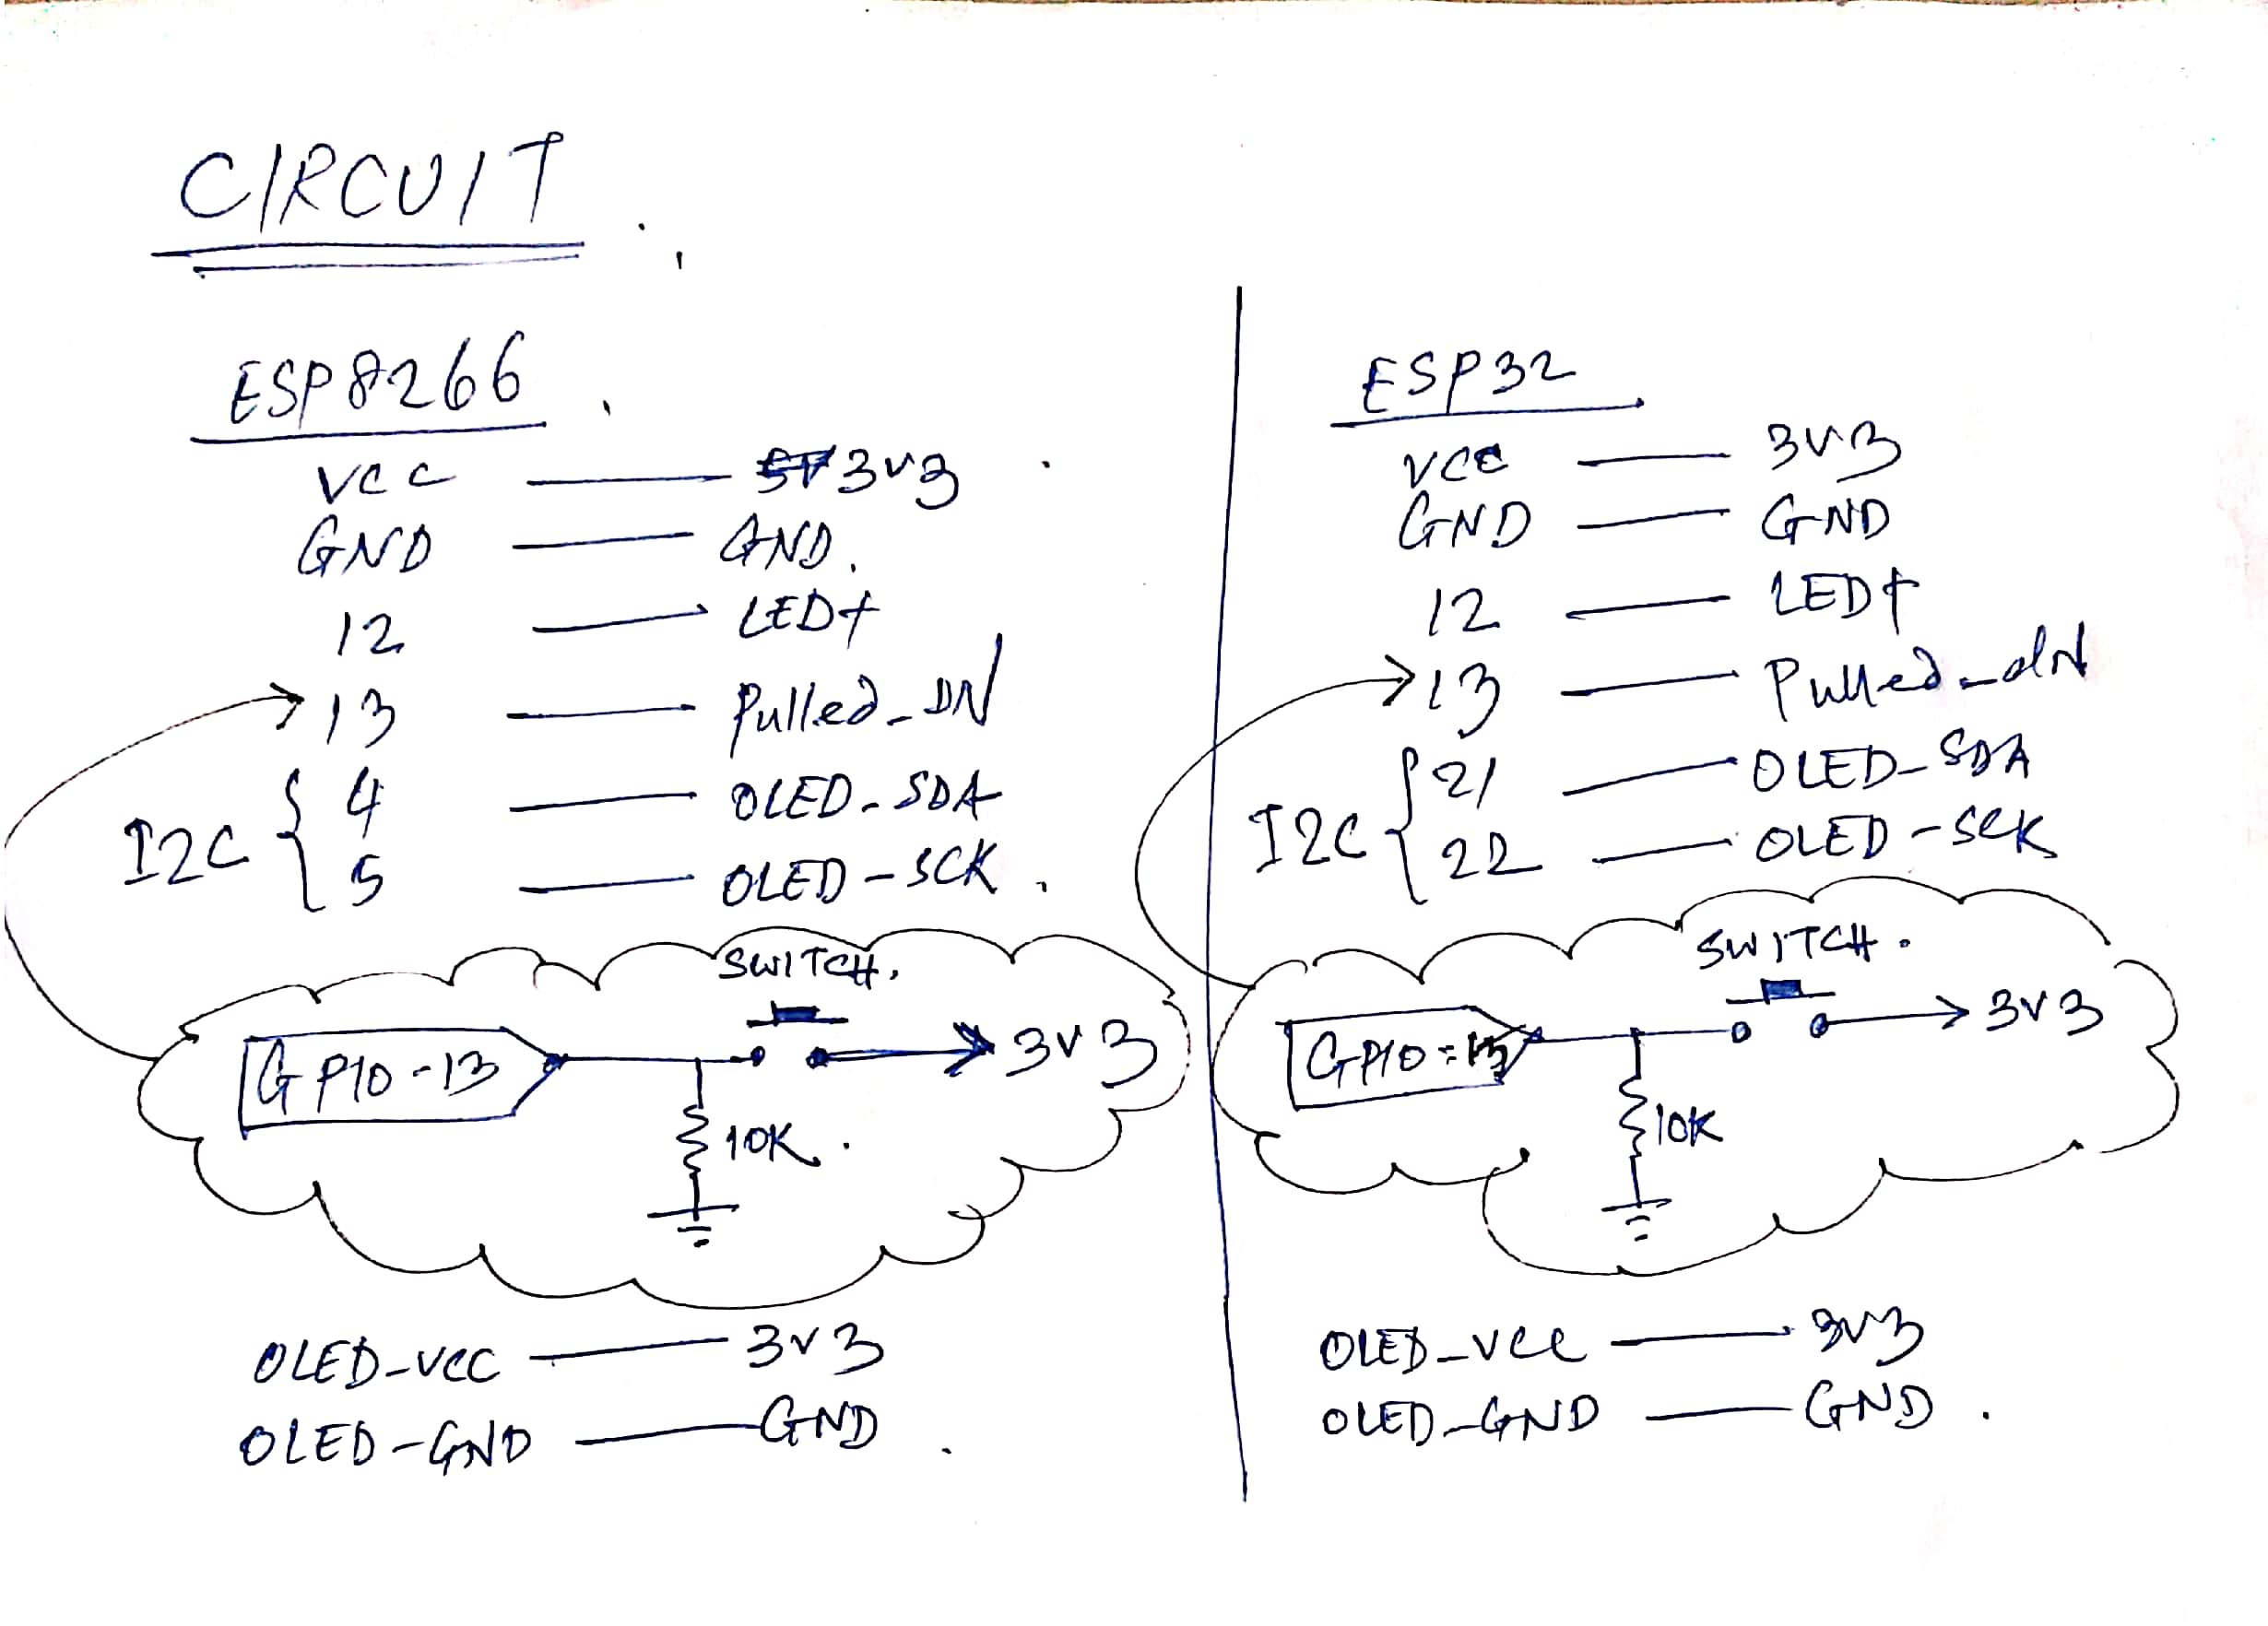 CIRCUIT
ESP8266
VCC — 3V3
GND — GND.
12 — LED+
13 — Pulled_DN
I2C { 4 — OLED_SDA
5 — OLED-SCK.
SWITCH.
GPIO-13 3V3
10K.
OLED-VCC — 3V3
OLED-GND — GND.
ESP32
VCC — 3V3
GND — GND
12 — LED+
13 — Pulled_dN
I2C { 21 — OLED_SDA
22 — OLED-SCK
SWITCH.
GPIO-13 3V3
10K
OLED_VCC — 3V3
OLED_GND — GND.